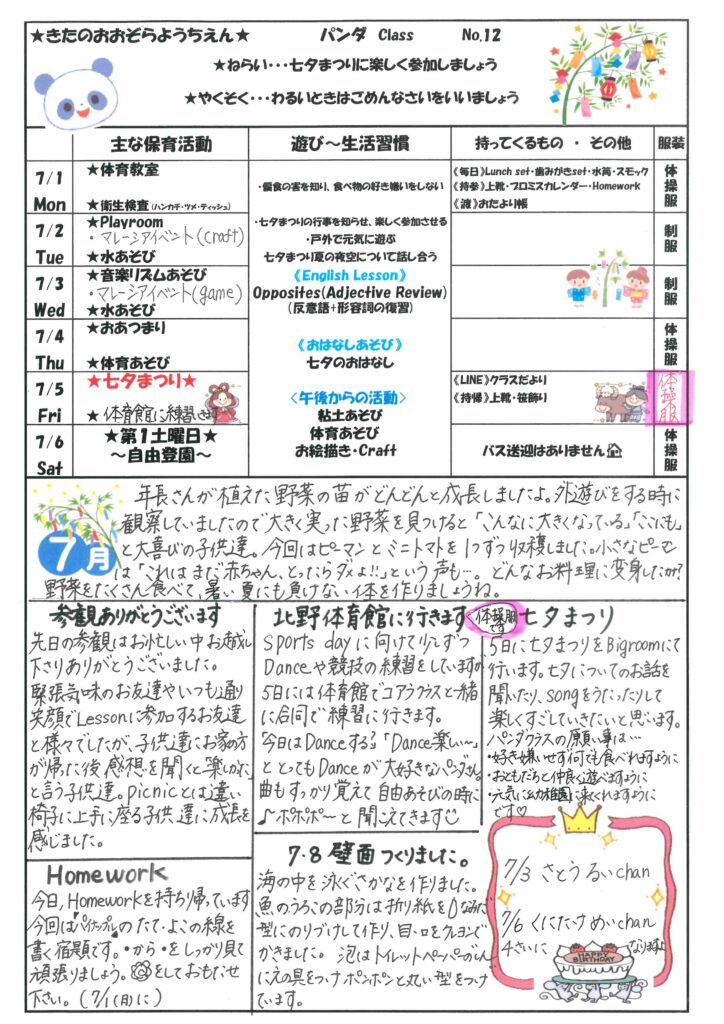 ★きたのおおぞらようちえん★ パンダ Class No.12
★ねらい・・・七夕まつりに楽しく参加しましょう
★やくそく・・・わるいときはごめんなさいをいいましょう
主な保育活動 遊び～生活習慣 持ってくるもの ・ その他 服装
7/1 Mon
★体育教室
★衛生検査(ハンカチ・ツメ・ティッシュ)
・偏食の害を知り、食べ物の好き嫌いをしない
《毎日》Lunch set・歯みがきset・水筒・スモック
《持参》上靴・プロミスカレンダー・Homework
《渡》おたより帳
体操服
7/2 Tue
★Playroom
・マレーシアイベント(craft)
★水あそび
・七夕まつりの行事を知らせ、楽しく参加させる
・戸外で元気に遊ぶ
七夕まつり夏の夜空について話し合う
制服
7/3 Wed
★音楽リズムあそび
・マレーシアイベント(game)
★水あそび
《English Lesson》
Opposites(Adjective Review)
(反意語+形容詞の復習)
制服
7/4 Thu
★おあつまり
★体育あそび
《おはなしあそび》
七夕のおはなし
体操服
7/5 Fri
★七夕まつり★
★体育館に練習
《LINE》クラスだより
《持帰》上靴・笹飾り
体操服
〈午後からの活動〉
粘土あそび
体育あそび
お絵描き・Craft
7/6 Sat
★第1土曜日★
～自由登園～
バス送迎はありません
体操服
7月
年長さんが植えた野菜の苗がどんどんと成長しましたよ。外遊びをする時に
観察していましたので大きく実った野菜を見つけると「こんなに大きくなっている」「ここにも」
と大喜びの子供達。今回はピーマンとミニトマトを1つずつ収穫しました。小さなピーマン
は「これはまだ赤ちゃん、とったらダメよ!!」という声も…。どんなお料理に変身したか?
野菜をたくさん食べて、暑い夏にも負けない体を作りましょうね。
参観ありがとうございます
先日の参観はお忙しい中お越し
下さりありがとうございました。
緊張気味のお友達やいつも通り
笑顔でLessonに参加するお友達
と様々でしたが、子供達にお家の方
が帰った後感想を聞くと「楽しかった」
と言う子供達。picnicとは違い
椅子に上手に座る子供達に成長を
感じました。
北野体育館に行きます
体操服です
Sports dayに向けて少しずつ
Danceや競技の練習をしていますが
5日には体育館でコアラクラスと一緒
に合同で練習に行きます。
今日はDanceする?「Dance楽しい〜」
ととってもDanceが大好きなパンダさん
曲もすっかり覚えて自由あそびの時に
♪ポポポ〜と聞こえてきます
七夕まつり
5日に七夕まつりをBigroomにて
行います。七夕についてのお話を
聞いたり、songをうたったりして
楽しくすごしていきたいと思います。
パンダクラスの願い事は…
・好き嫌いせず何でも食べれますように
・おともだちと仲良く遊べますように
・元気に幼稚園に来てくれますように
です♡
Homework
今日、Homeworkを持ち帰っています
今回は"パイナップル"のたて・よこの線を
書く宿題です。・から・をしっかり見て
頑張りましょう。をしておもたせ
下さい。(7/1(月)に)
7・8 壁面つくりました。
海の中を泳ぐさかなを作りました。
魚のうろこの部分は折り紙を
型にのりづけして作り、目・口をクレヨンで
かきました。泡はトイレットペーパーのしん
にえの具をつけポンポンと丸い型をつけ
ています。
7/3 さとうるいchan
7/6 くにたけめいchan
4さいに なりますよ
HAPPY BIRTHDAY